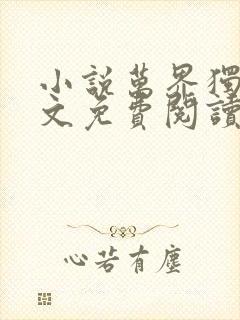 小說萬界獨
文免費閱讀
心若有塵